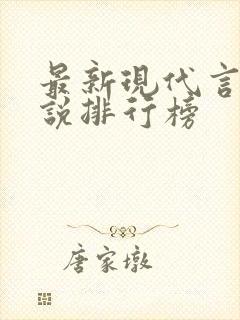 最新現代言
說排行榜
唐家墩